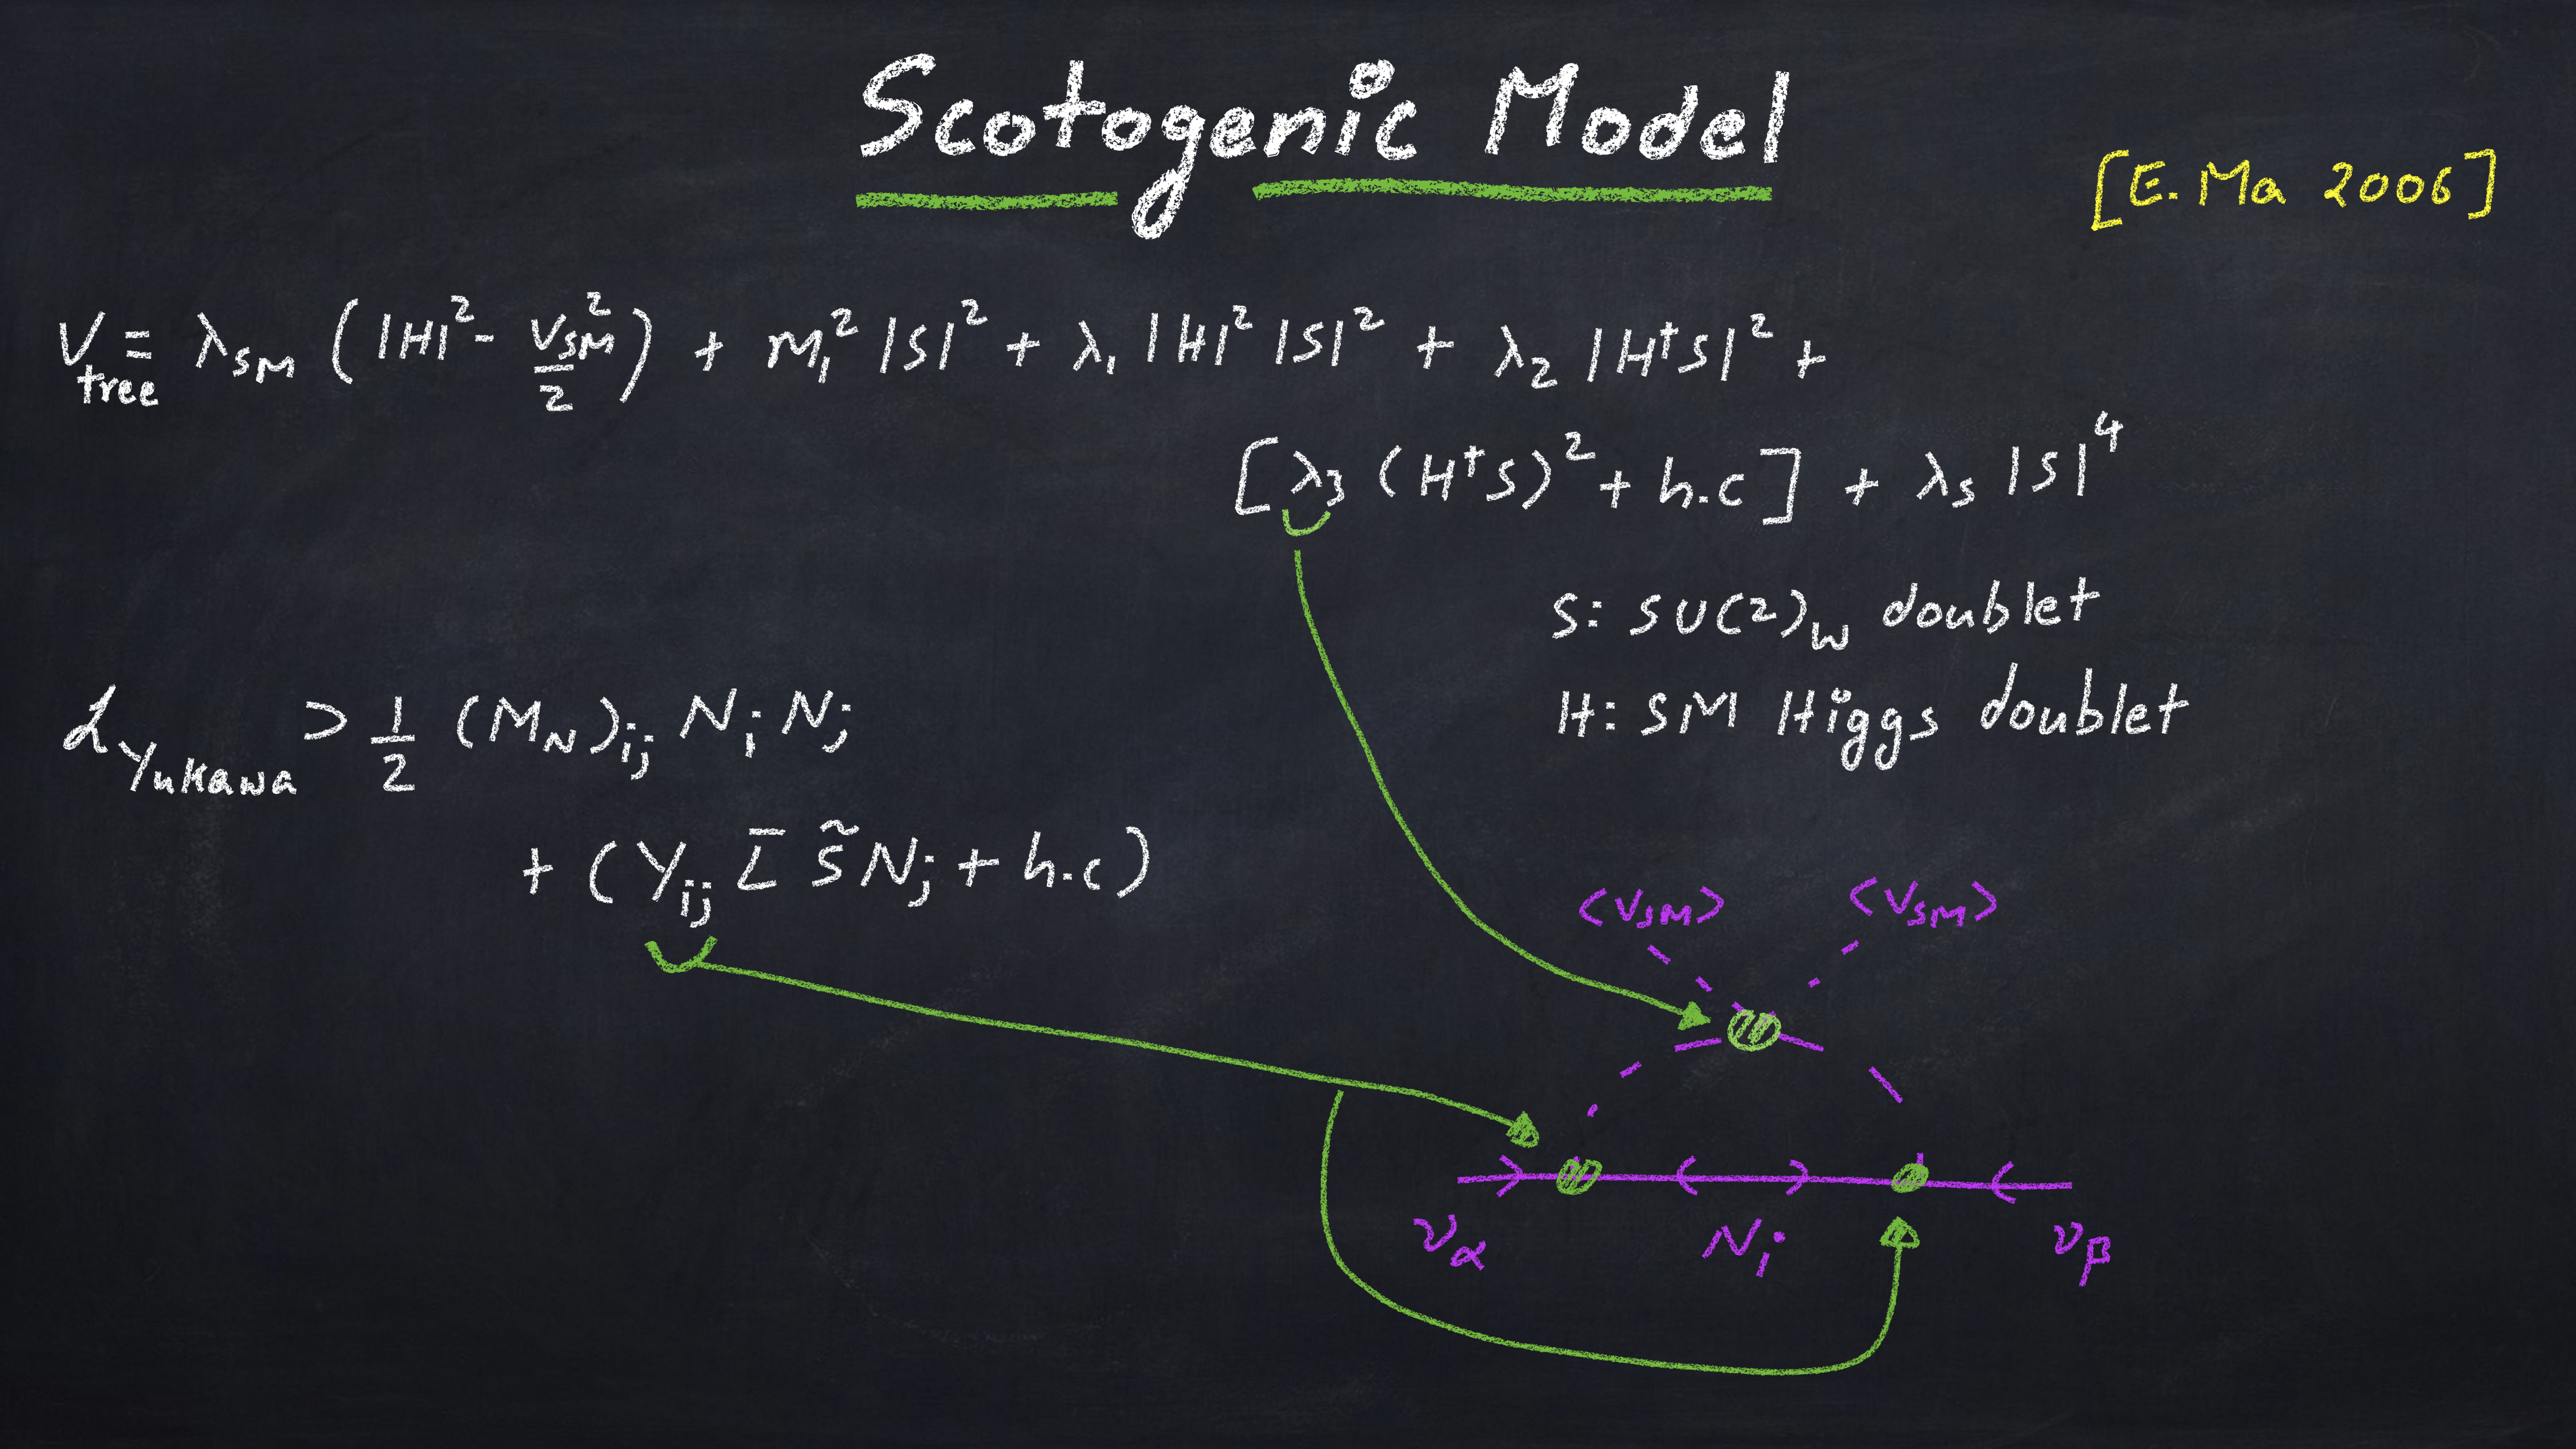 Scotogenic Model
[E. Ma 2006]
V_tree = λ_SM (|H|² - v_SM²/2) + m₁² |S|² + λ₁ |H|² |S|² + λ₂ |H†S|² +
[λ₃ (H†S)² + h.c] + λ_S |S|⁴
S: SU(2)_W doublet
H: SM Higgs doublet
ℒ_Yukawa ⊃ 1/2 (M_N)_ij N_i N_j
+ (Y_ij L̄ S̃ N_j + h.c)
⟨V_SM⟩ ⟨V_SM⟩
ν_α N_i ν_β